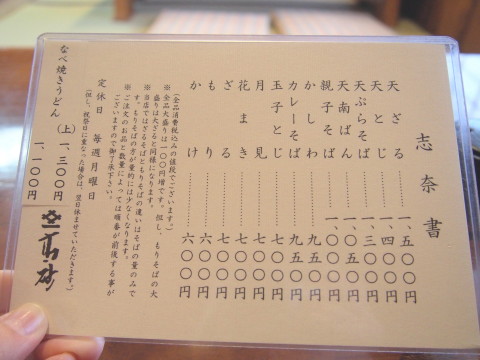 志奈書
天ざる……一、五〇〇円
天とじ……一、四〇〇円
天ぷらそば……一、三〇〇円
天南ばん……一、〇五〇円
親子そば……一、〇〇〇円
かしわ……九五〇円
カレーそば……九五〇円
玉子とじ……七〇〇円
月見……七〇〇円
花まき……七〇〇円
ざる……七〇〇円
もり……六〇〇円
かけ……六〇〇円
(全品消費税込みの値段でございます。)
※全品大盛りは一〇〇円増です。但し、もりそばの大
盛りは大ざると同様になります。
※当店ではざるそばともりそばの違いはそばの量のみで
す。もりそばの方が量的には少なくなります。
※ご注文のお品と数量によっては順番が前後する事が
ございますので御了承下さい。
定休日 毎週月曜日
(但し、祝祭日に重なった場合は、翌日休ませていただきます。)
なべ焼きうどん(上)一、三〇〇円
一、一〇〇円